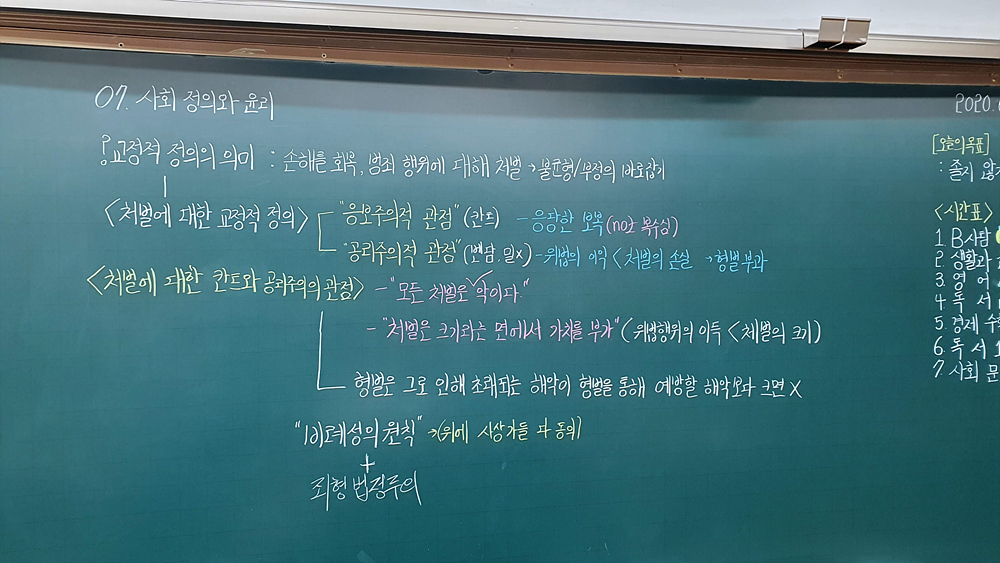 07. 사회 정의와 윤리
2. 교정적 정의의 의미 : 손해를 회복, 범죄 행위에 대해 처벌 → 불균형/부정의 바로잡기
<처벌에 대한 교정적 정의>
"응보주의적 관점" (칸트) - 응당한 보복 (no단 복수심)
"공리주의적 관점" (벤담, 밀x) - 위법의 이익 < 처벌의 손실 → 형벌 부과
<처벌에 대한 칸트와 공리주의의 관점> - "모든 처벌은 악이다."
- "처벌은 크기라는 면에서 가치를 부가" (위법행위의 이득 < 처벌의 크기)
형벌은 그로 인해 초래되는 해악이 형벌을 통해 예방할 해악보다 크면 X
"비례성의 원칙" → (위에 사상가들 다 동의)
+
죄형 법정주의
2020.
[오늘의 목표]
: 졸지 않
<시간표>
1. B사탐
2. 생활과
3. 영어
4. 독서
5. 경제 수학
6. 독서
7. 사회 문